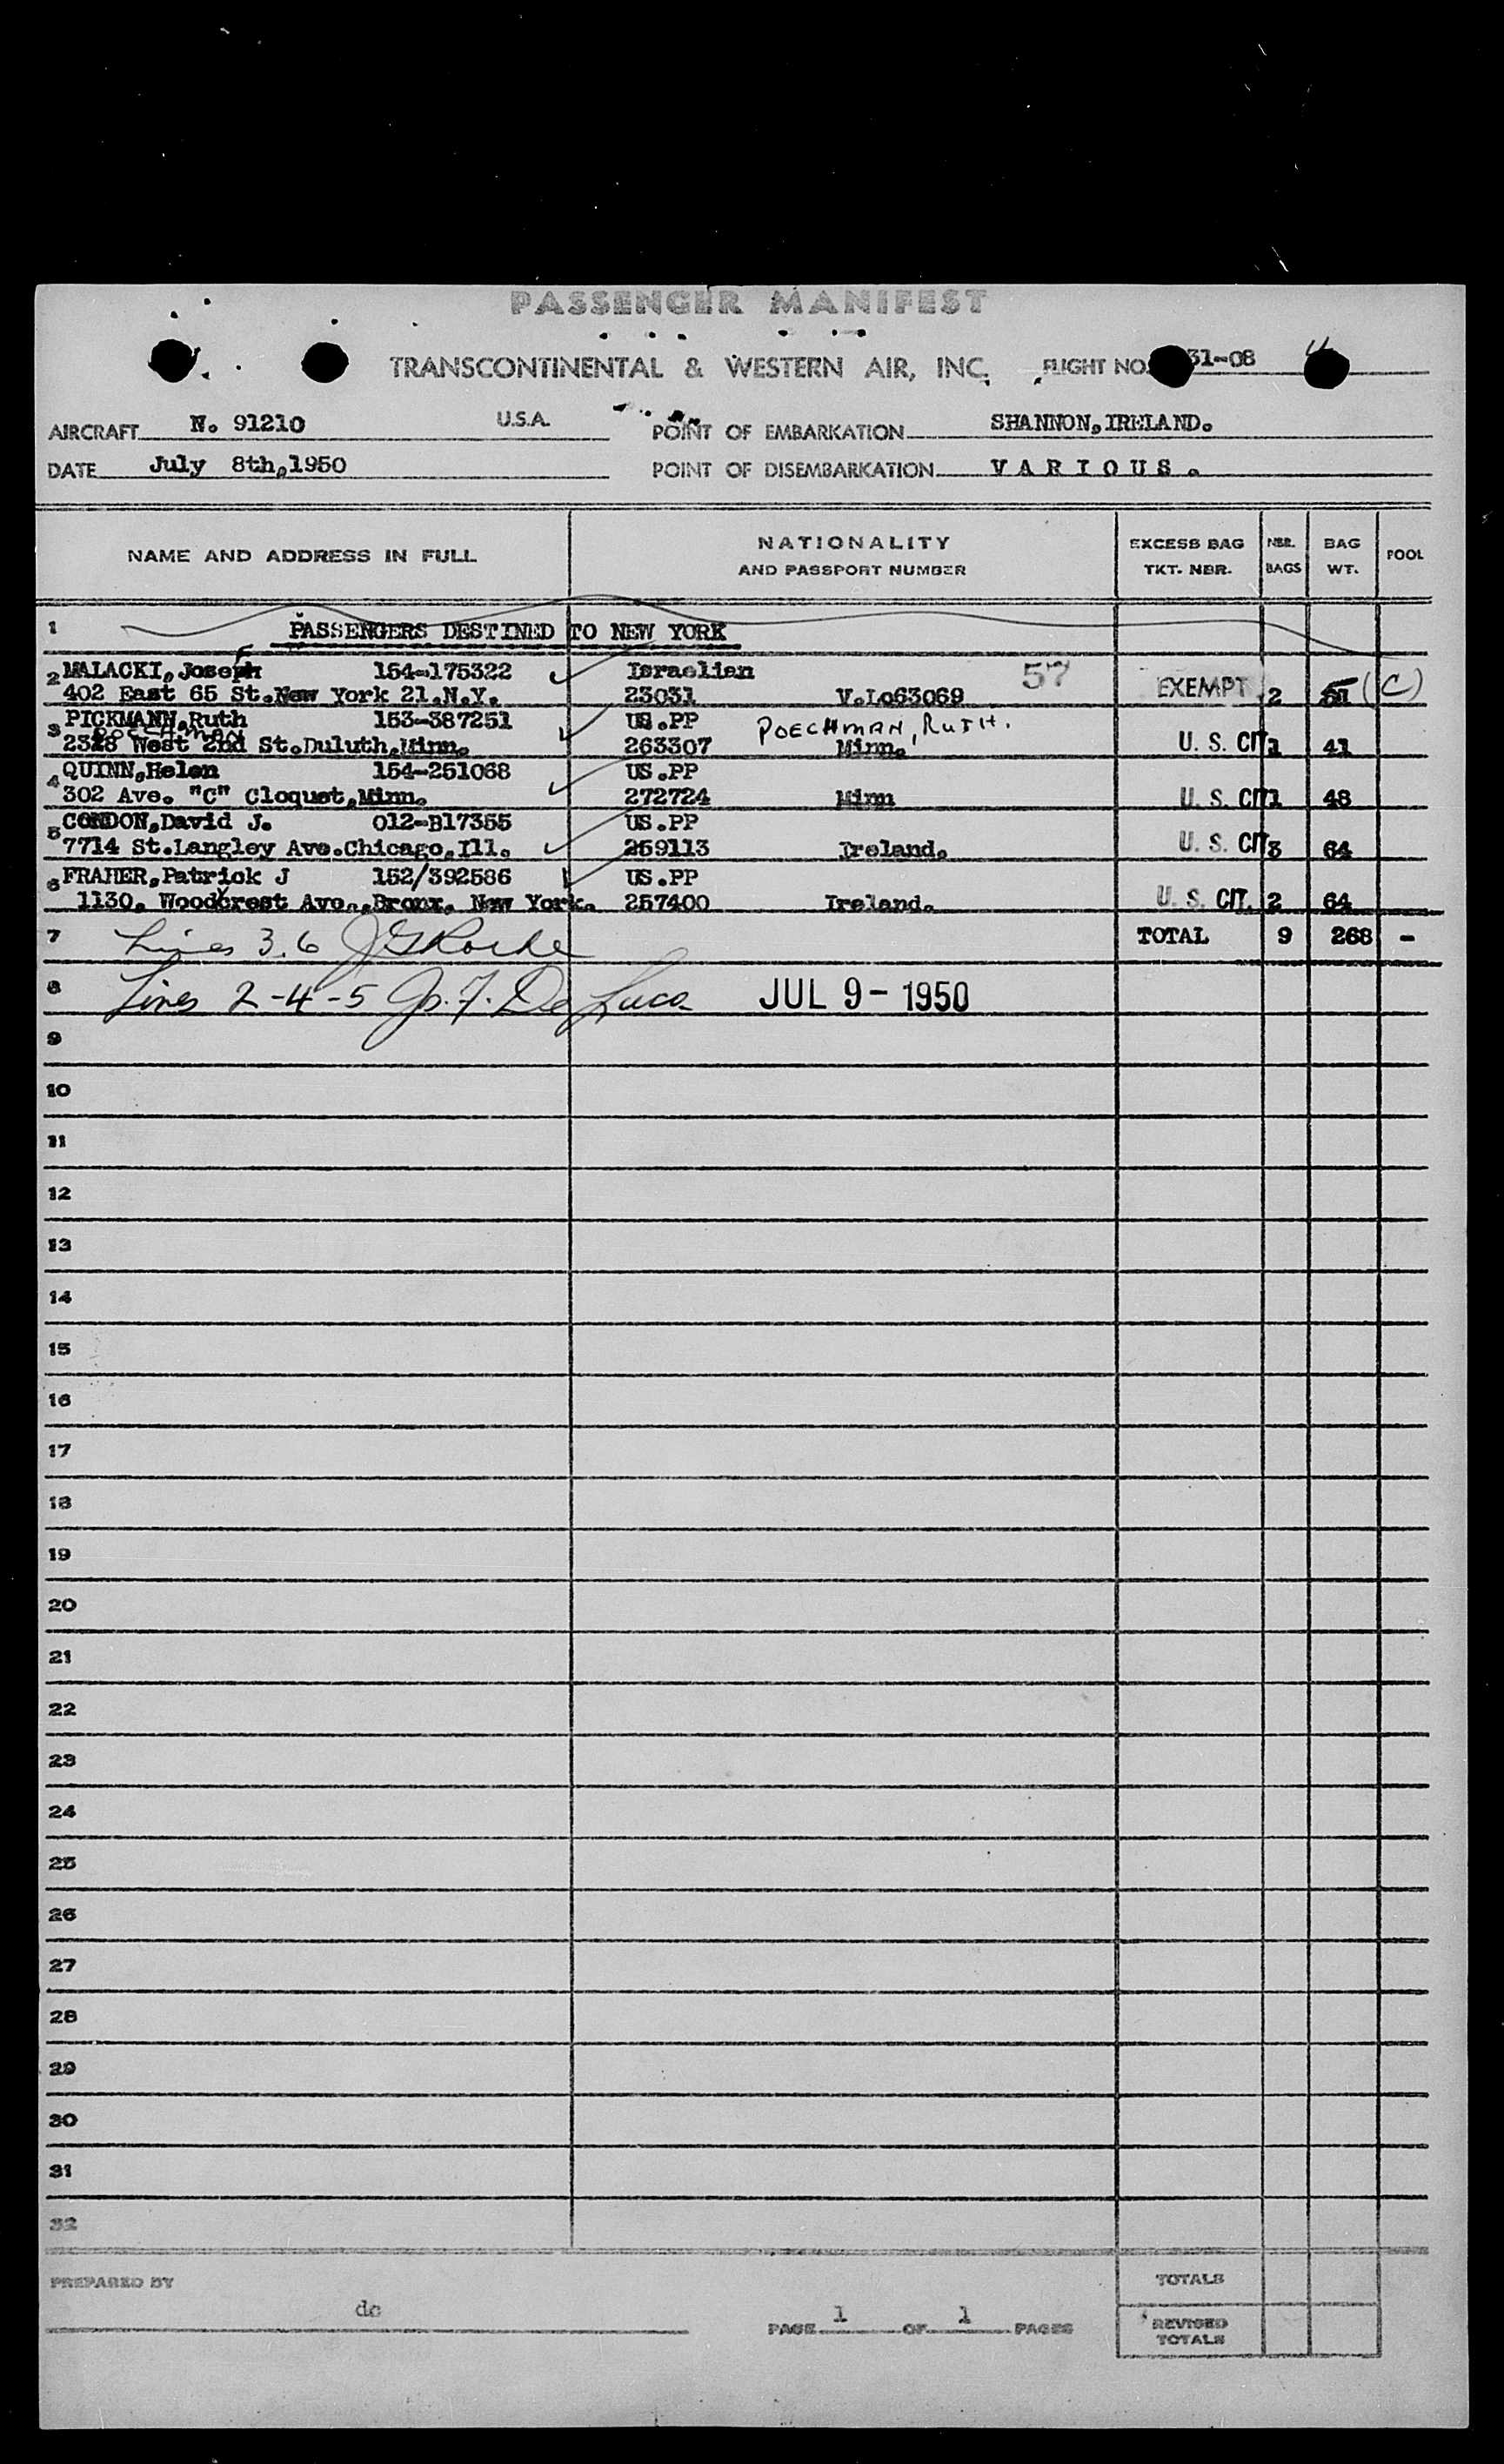 PASSENGER MANIFEST
TRANSCONTINENTAL & WESTERN AIR, INC. FLIGHT NO. 31-08
AIRCRAFT N. 91210 U.S.A. POINT OF EMBARKATION SHANNON, IRELAND.
DATE July 8th, 1950 POINT OF DISEMBARKATION VARIOUS.
NAME AND ADDRESS IN FULL NATIONALITY AND PASSPORT NUMBER EXCESS BAG TKT. NBR. NBR. BAGS BAG WT. POOL
1 PASSENGERS DESTINED TO NEW YORK
2 MALACKI, Joseph 154-175322 Israelian 57
402 East 65 St. New York 21. N.Y. 23031 V.Lo63069 EXEMPT 2 51 (C)
3 PICKMANN, Ruth 153-387251 US.PP POECHMAN, RUTH.
POECHMAN
2328 West 2nd St. Duluth, Minn. 263307 Minn. U. S. CIT 1 41
4 QUINN, Helen 154-251068 US.PP
302 Ave. "C" Cloquet, Minn. 272724 Minn U. S. CIT 1 48
5 CONDON, David J. 012-B17355 US.PP
7714 St. Langley Ave. Chicago, Ill. 259113 Ireland. U. S. CIT 3 64
6 FRAHER, Patrick J 152/392586 US.PP
1130. Woodcrest Ave., Bronx. New York. 257400 Ireland. U. S. CIT. 2 64
7 Lines 3.6 TOTAL 9 268 -
8 Lines 2-4-5 Jo. F. De Luca JUL 9 - 1950
9
10
11
12
13
14
15
16
17
18
19
20
21
22
23
24
25
26
27
28
29
30
31
32
PREPARED BY dc
PAGE 1 OF 1 PAGES
TOTALS
REVISED TOTALS